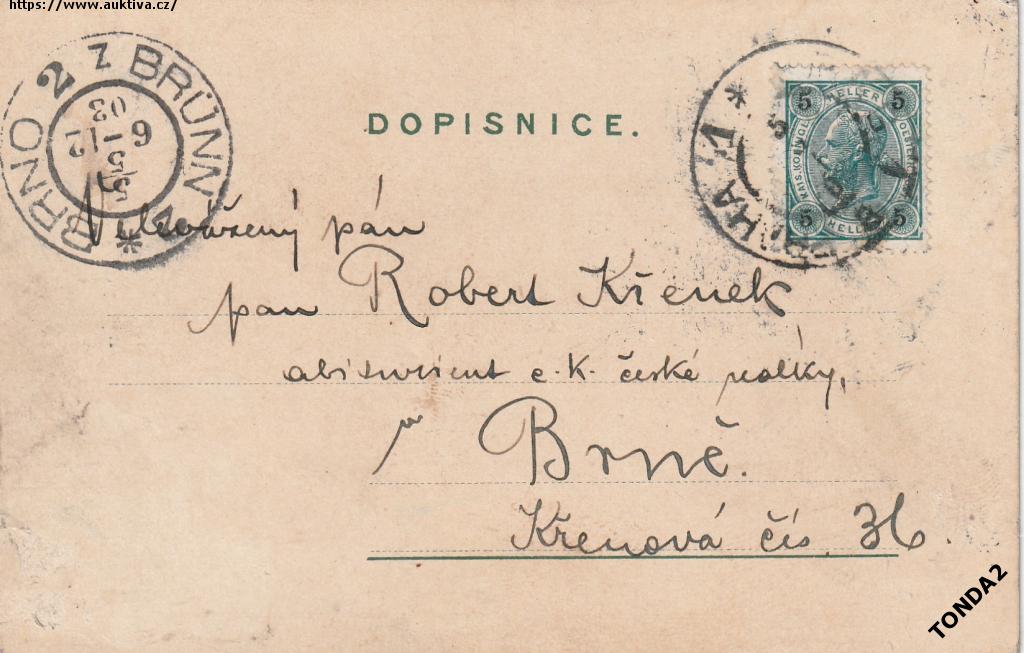 https://www.auktiva.cz/
BRNO 2 Z BRÜNN 2 *
5/5
6-12
03
DOPISNICE.
5 HELLER 5
KAIS. KÖNIGL.
5 HELLER 5
Velevážený pán
pan Robert Křenek
abiturient c.k. české reálky,
v Brně.
Křenová čís. 36.
TONDA2